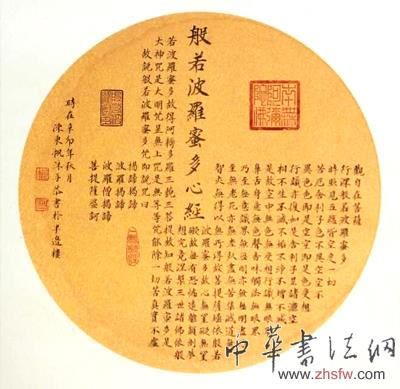 南無阿彌陀佛
觀自在菩薩
行深般若波羅蜜多
時照見五蘊皆空度一切
苦厄舍利子色不異空空不
異色色即是空空即是色受想
行識亦復如是舍利子是諸法空
相不生不滅不垢不淨不增不減
是故空中無色無受想行識無眼耳
鼻舌身意無色聲香味觸法無眼界
乃至無意識界無無明亦無無明盡乃
至無老死亦無老死盡無苦集滅道無
智亦無得以無所得故菩提薩埵依般若
波羅蜜多故心無罣礙無罣
礙故無有恐怖遠離顛倒夢
想究竟涅槃三世諸佛依般
般若波羅蜜多心經
若波羅蜜多故得阿耨多羅三藐三菩提故知般若波羅蜜多是
大神咒是大明咒是無上咒是無等等咒能除一切苦真實不虛
故說般若波羅蜜多咒即說咒曰
揭諦揭諦
波羅揭諦
波羅僧揭諦
菩提薩婆訶
時在辛卯年秋月
陳東帆沐手恭書於半邊樓
中華書法網
www.zhsfw.com